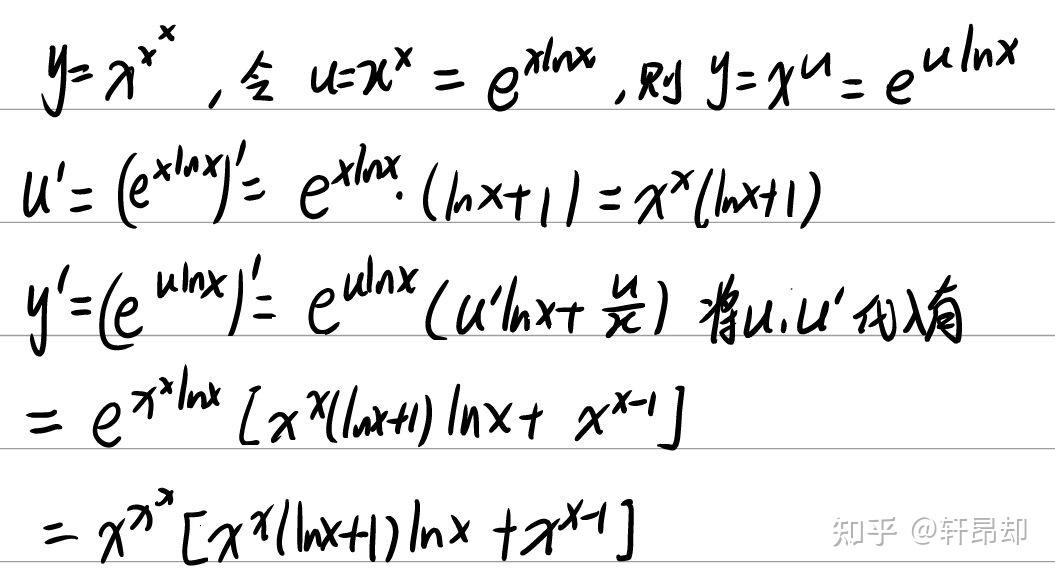 y = x^{x^x}, 令 u = x^x = e^{xlnx}, 则 y = x^u = e^{ulnx}
u' = (e^{xlnx})' = e^{xlnx}·(lnx+1) = x^x(lnx+1)
y' = (e^{ulnx})' = e^{ulnx}(u'lnx + \frac{u}{x}) 将u,u'代入有
= e^{x^xlnx}[x^x(lnx+1)lnx + x^{x-1}]
= x^{x^x}[x^x(lnx+1)lnx + x^{x-1}]
知乎 @轩昂却